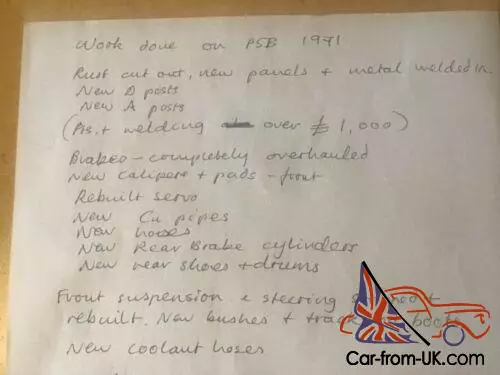 Work done on P5B 1971
Rust cut out, new panels + metal welded in
New D posts
New A posts
(Pts. + welding over £1,000)
Brakes - completely overhauled
New calipers + pads - front
Rebuilt servo
New Cu pipes
New hoses
New Rear Brake cylinders
New rear shoes + drums
Front suspension & steering
rebuilt. New bushes + track
New coolant hoses
Car-from-UK.com